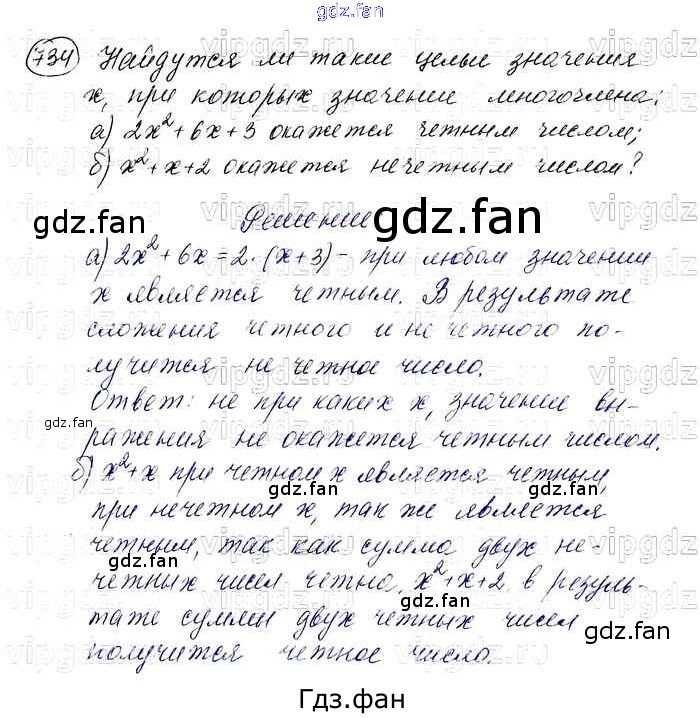 gdz.fan
734 Найдутся ли такие целые значения
x, при которых значение многочлена:
а) 2x²+6x+3 окажется четным числом;
б) x²+x+2 окажется нечетным числом?
Решение
gdz.fan gdz.fan
а) 2x²+6x=2·(x+3) - при любом значении
x является четным. В результате
сложения четного и нечетного по-
лучится не четное число.
Ответ: не при каких x, значение вы-
gdz.fan
ражения не окажется четным числом.
б) x²+x при четном x является четным,
gdz.fan gdz.fan
при нечетном x, так же является
четным, так как сумма двух не-
gdz.fan
четных чисел четно, x²+x+2, в резуль-
gdz.fan
тате суммы двух четных чисел
gdz.fan
получится четное число.
Гдз.фан